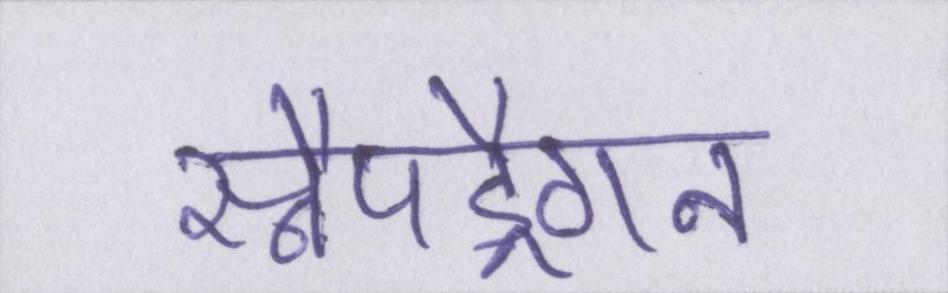 स्नैपड्रैगन